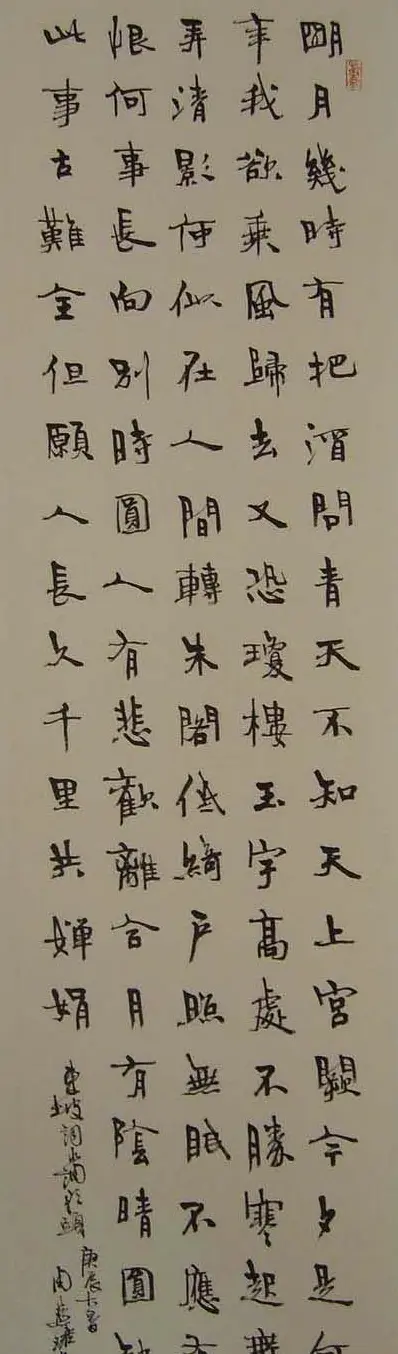 明月幾時有把酒問青天不知天上宮闕今夕是何
年我欲乘風歸去又恐瓊樓玉宇高處不勝寒起舞
弄清影何似在人間轉朱閣低綺戶照無眠不應有
恨何事長向別時圓人有悲歡離合月有陰晴圓缺
此事古難全但願人長久千里共嬋娟
東坡詞水調歌頭
庚辰大暑
周